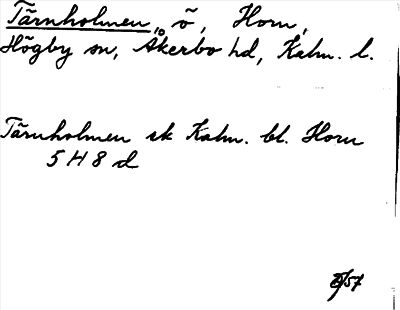 Tärnholmen, ö, Horn,
Högby sn, Åkerbo hd, Kalm. l.
Tärnholmen sk Kalm. bl. Horn
5 H 8 d
/57